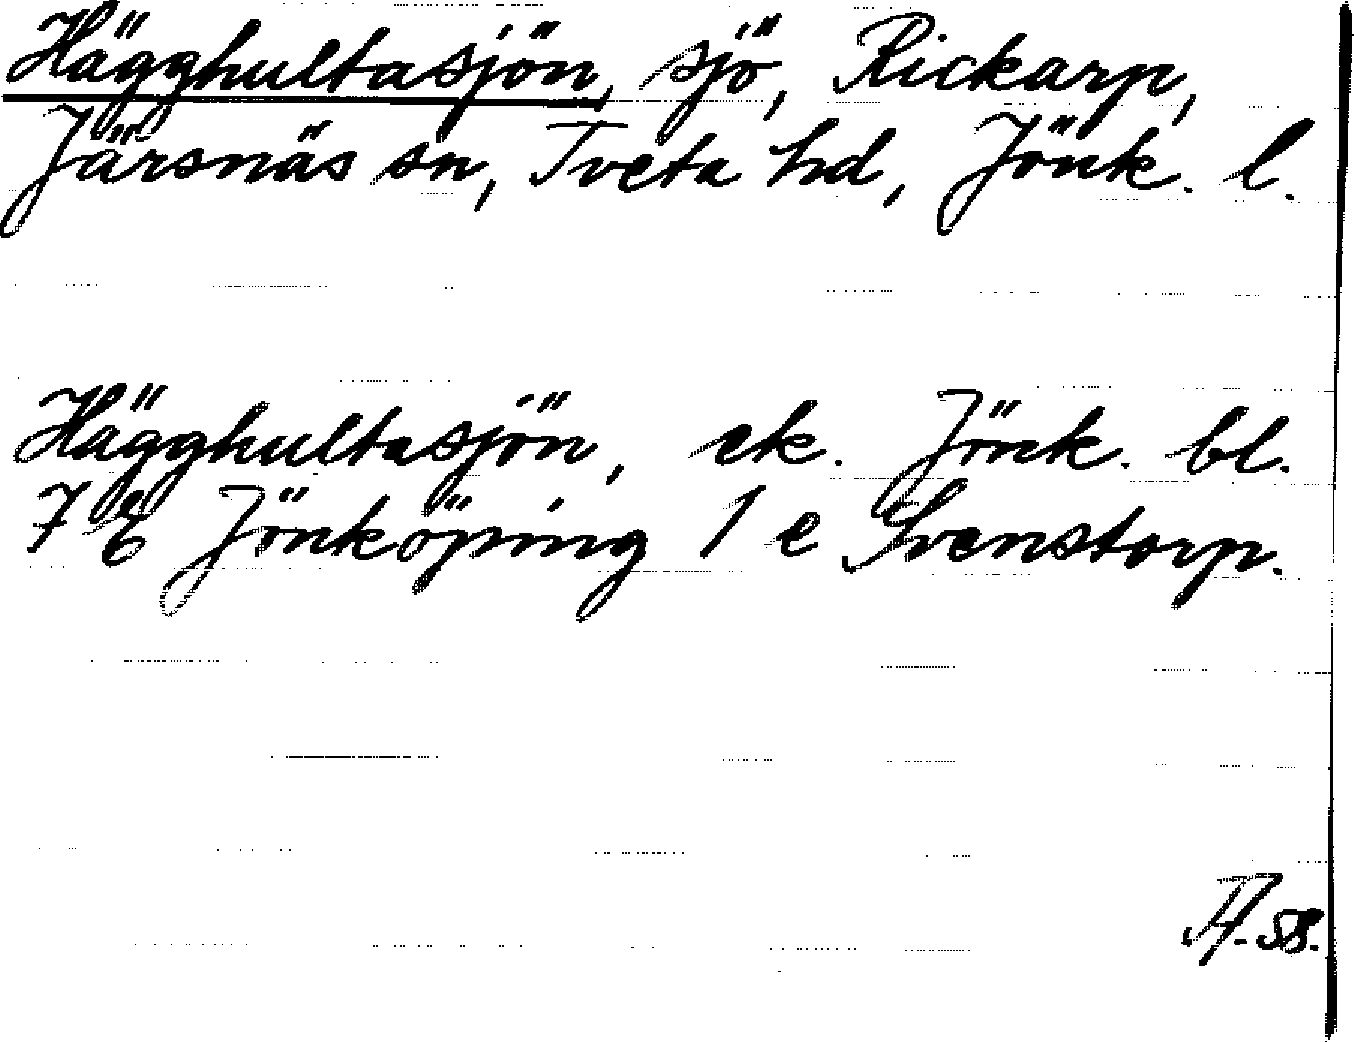 Hägghultasjön, sjö, Rickarp,
Järsnäs sn, Tveta hd, Jönk. l.
Hägghultasjön, ek. Jönk. bl.
7 E Jönköping 1 e Svenstorp.